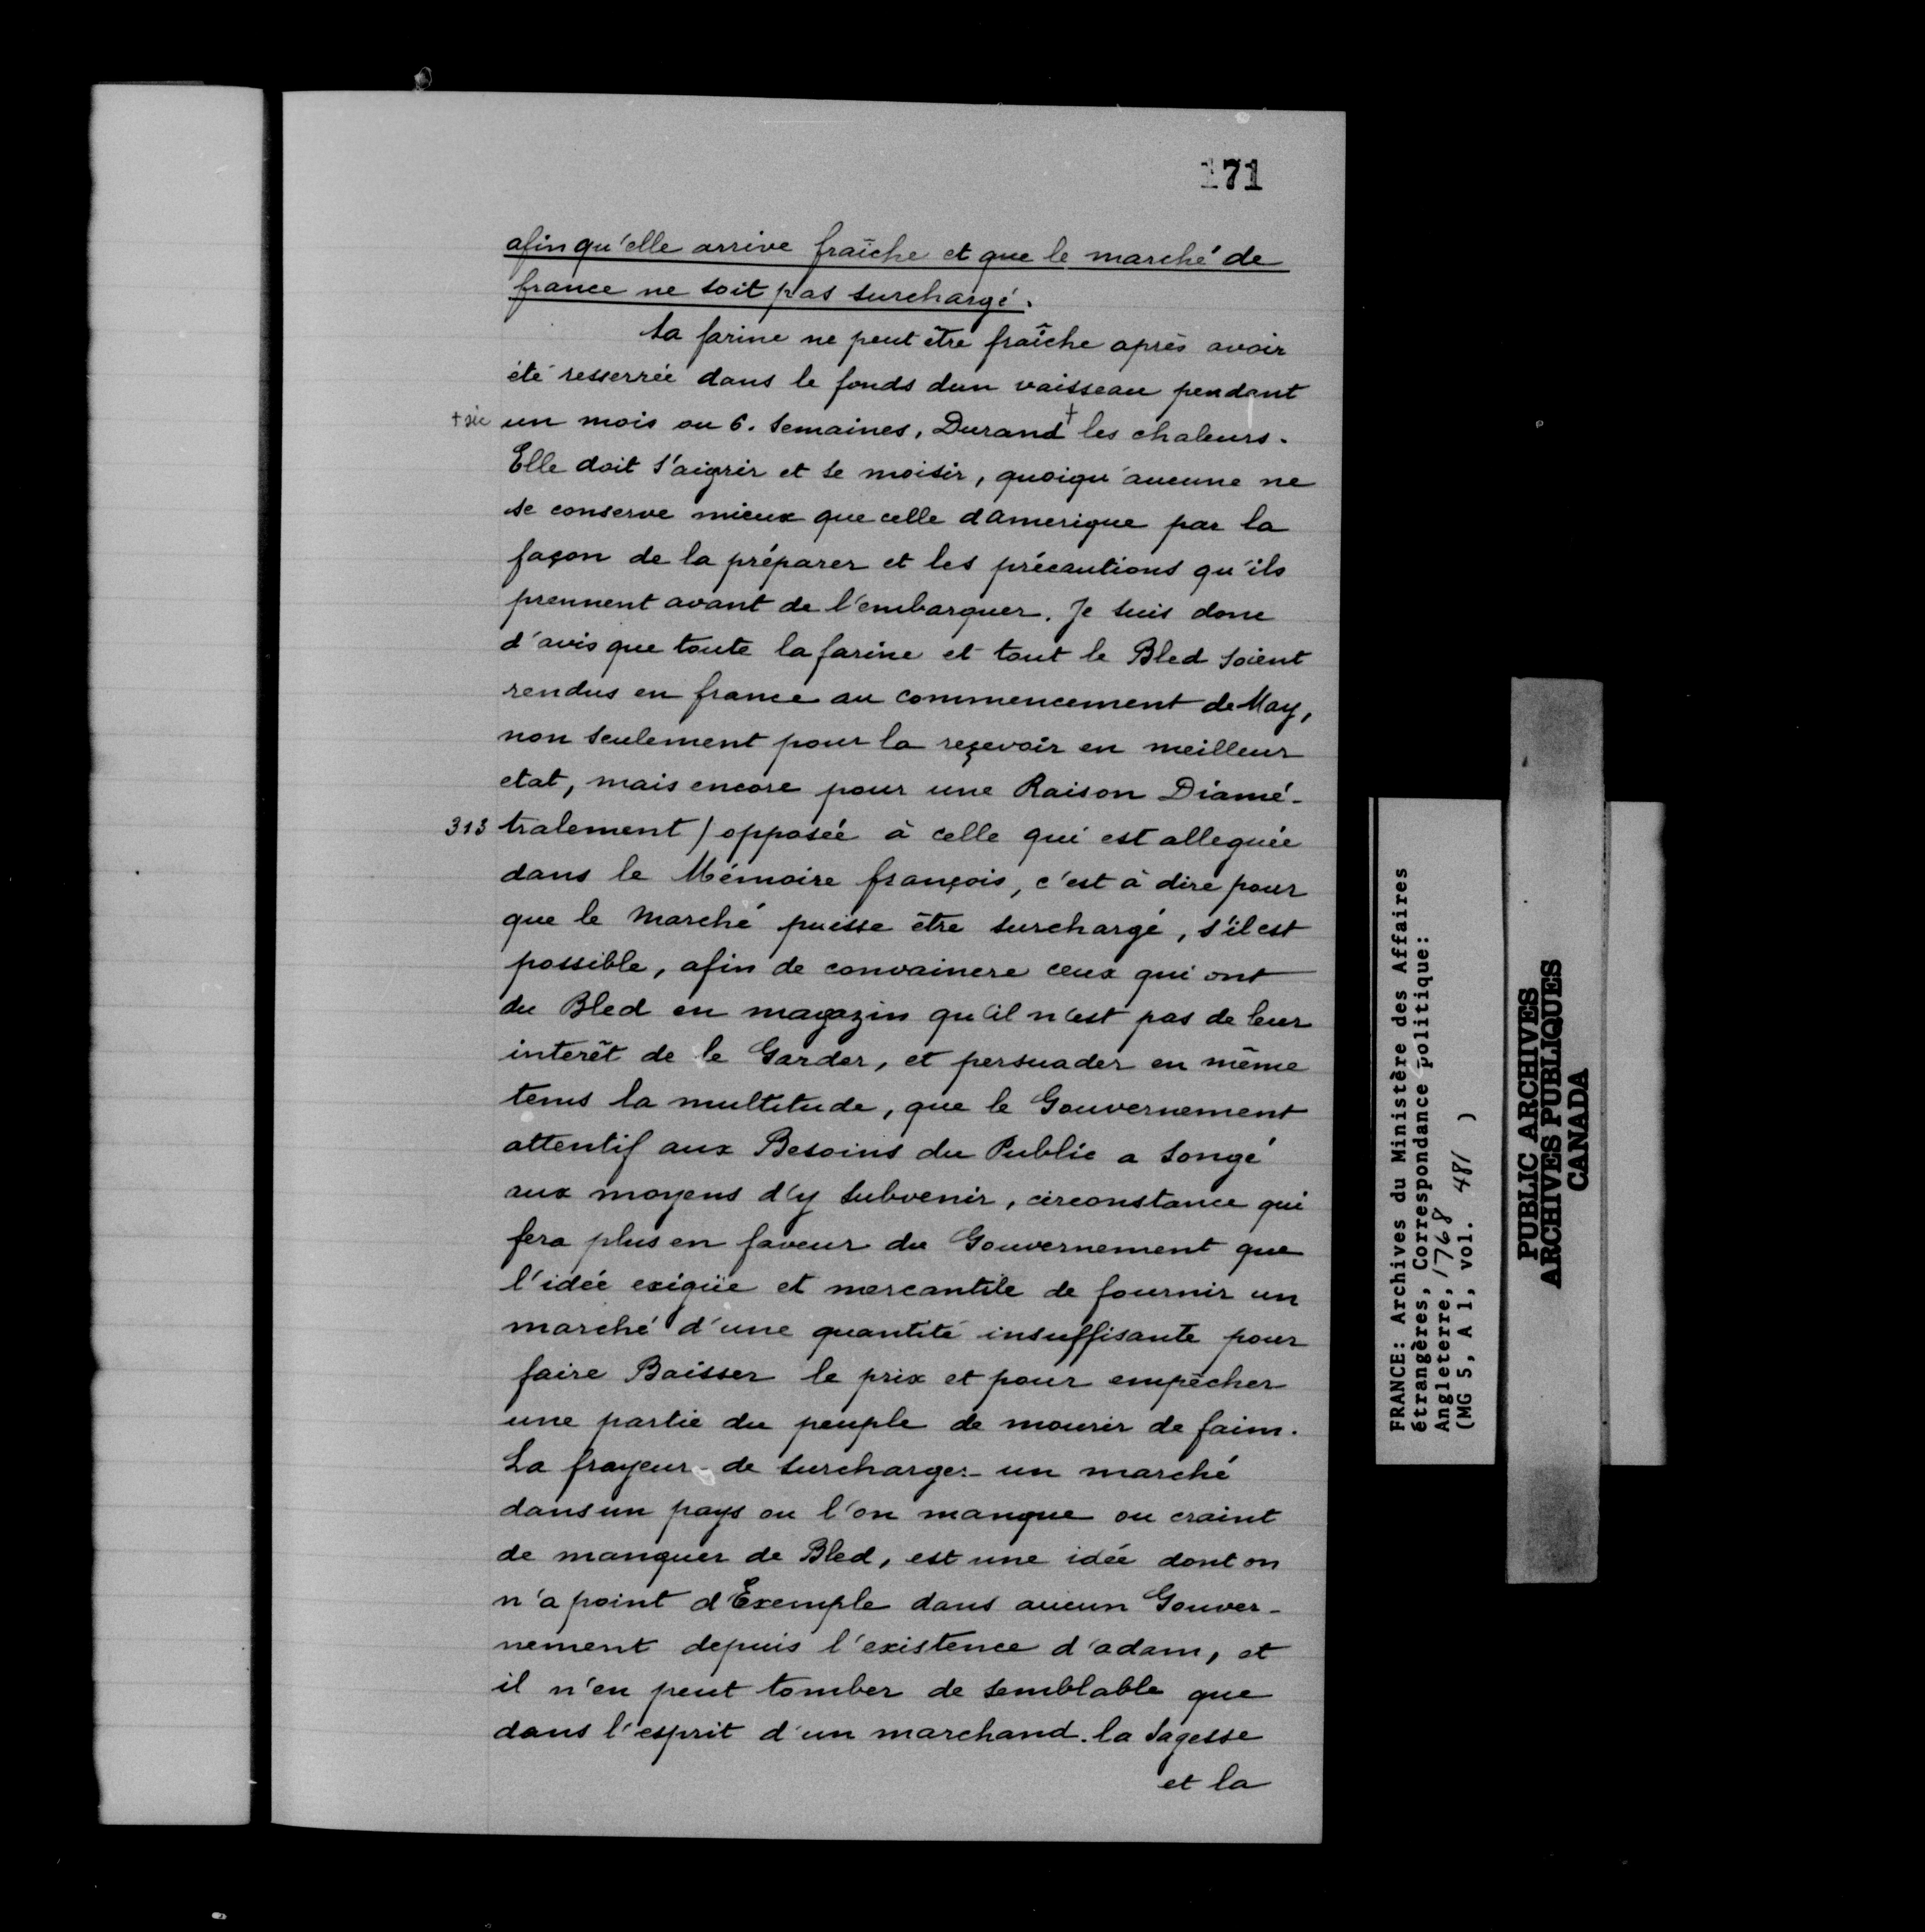 171
afin qu'elle arrive fraîche et que le marché de
france ne soit pas surchargé.
La farine ne peut être fraîche après avoir
été resserrée dans le fonds dun vaisseau pendant
+ sic un mois ou 6. semaines, Durand + les chaleurs.
Elle doit s'aigrir et se moisir, quoiqu'aucune ne
se conserve mieux que celle damerique par la
façon de la préparer et les précautions qu'ils
prennent avant de l'embarquer. Je suis donc
d'avis que toute la farine et tout le Bled soient
rendus en france au commencement de May,
non seulement pour la reçevoir en meilleur
etat, mais encore pour une Raison Diamé-
313 tralement / opposée à celle qui est alleguée
dans le Mémoire françois, c'est à dire pour
que le Marché puisse être surchargé, s'il est
possible, afin de convaincre ceux qui ont
du Bled en magazin qu'il n'est pas de leur
interêt de le Garder, et persuader en même
tems la multitude, que le Gouvernement
attentif aux Besoins du Public a songé
aux moyens d'y subvenir, circonstance qui
fera plus en faveur du Gouvernement que
l'idée exigüe et mercantile de fournir un
marché d'une quantité insuffisante pour
faire Baisser le prix et pour empêcher
une partie du peuple de mourir de faim.
La frayeur de surcharger un marché
dans un pays ou l'on manque ou craint
de manquer de Bled, est une idée dont on
n'a point d'Exemple dans aucun Gouver-
nement depuis l'existence d'adam, et
il n'en peut tomber de semblable que
dans l'esprit d'un marchand. la sagesse
et la
FRANCE: Archives du Ministère des Affaires
étrangères, Correspondance politique:
Angleterre, 1768
(MG 5, A 1, vol. 481 )
PUBLIC ARCHIVES
ARCHIVES PUBLIQUES
CANADA